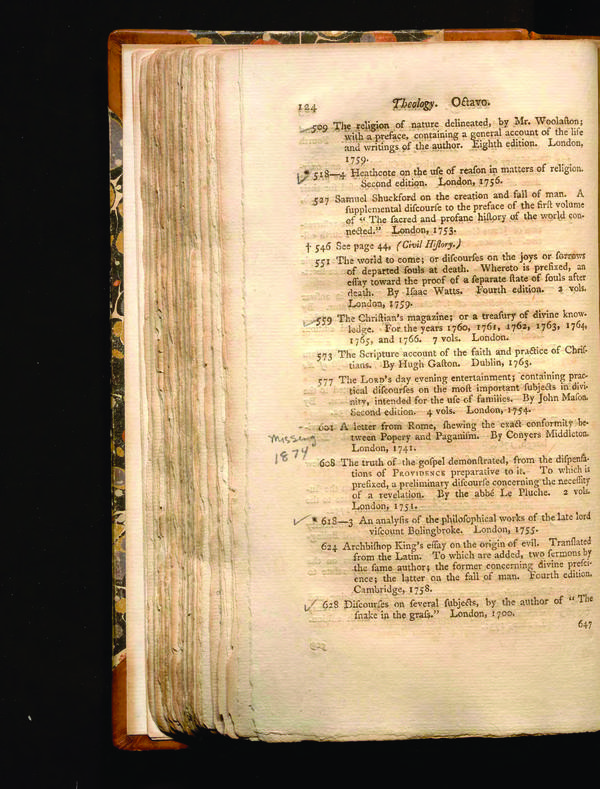 124 Theology. Octavo.
509 The religion of nature delineated, by Mr. Woolaſton;
with a preface, containing a general account of the life
and writings of the author. Eighth edition. London,
1759.
* 518—4 Heathcote on the uſe of reaſon in matters of religion.
Second edition. London, 1756.
527 Samuel Shuckford on the creation and fall of man. A
ſupplemental diſcourſe to the preface of the firſt volume
of “ The ſacred and profane hiſtory of the world con-
nected.” London, 1753.
† 546 See page 44, (Civil Hiſtory.)
551 The world to come; or diſcourſes on the joys or ſorrows
of departed ſouls at death. Whereto is prefixed, an
eſſay toward the proof of a ſeparate ſtate of ſouls after
death. By Iſaac Watts. Fourth edition. 2 vols.
London, 1759.
559 The Chriſtian's magazine; or a treaſury of divine know-
ledge. For the years 1760, 1761, 1762, 1763, 1764,
1765, and 1766. 7 vols. London.
573 The Scripture account of the faith and practice of Chriſ-
tians. By Hugh Gaſton. Dublin, 1763.
577 The LORD's day evening entertainment; containing prac-
tical diſcourſes on the moſt important ſubjects in divi-
nity, intended for the uſe of families. By John Maſon.
Second edition. 4 vols. London, 1754.
601 A letter from Rome, ſhewing the exact conformity be-
tween Popery and Paganiſm. By Conyers Middleton.
London, 1741.
Missing
1874
608 The truth of the goſpel demonſtrated, from the diſpenſa-
tions of PROVIDENCE preparative to it. To which is
prefixed, a preliminary diſcourſe concerning the neceſſity
of a revelation. By the abbé Le Pluche. 2 vols.
London, 1751.
* 618—3 An analyſis of the philoſophical works of the late lord
viſcount Bolingbroke. London, 1755.
624 Archbiſhop King's eſſay on the origin of evil. Tranſlated
from the Latin. To which are added, two ſermons by
the ſame author; the former concerning divine preſci-
ence; the latter on the fall of man. Fourth edition.
Cambridge, 1758.
628 Diſcourſes on ſeveral ſubjects, by the author of “ The
ſnake in the graſs.” London, 1700.
647